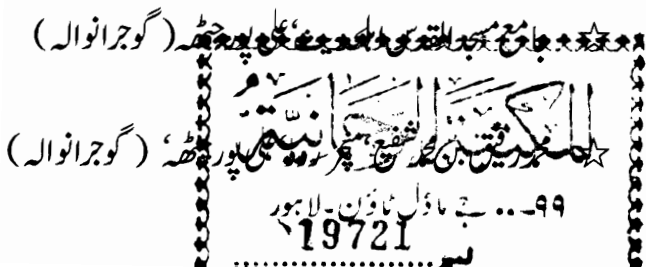 ☆ جامع مسجد القدس اہل حدیث، علی پور چٹھہ (گوجرانوالہ)
المكتبة الرحمانية
☆ محمد رفیق بن محمد شفیع علی پور چٹھہ، (گوجرانوالہ)
۹۹۔۔۔ جے ماڈل ٹاؤن۔ لاہور
19721